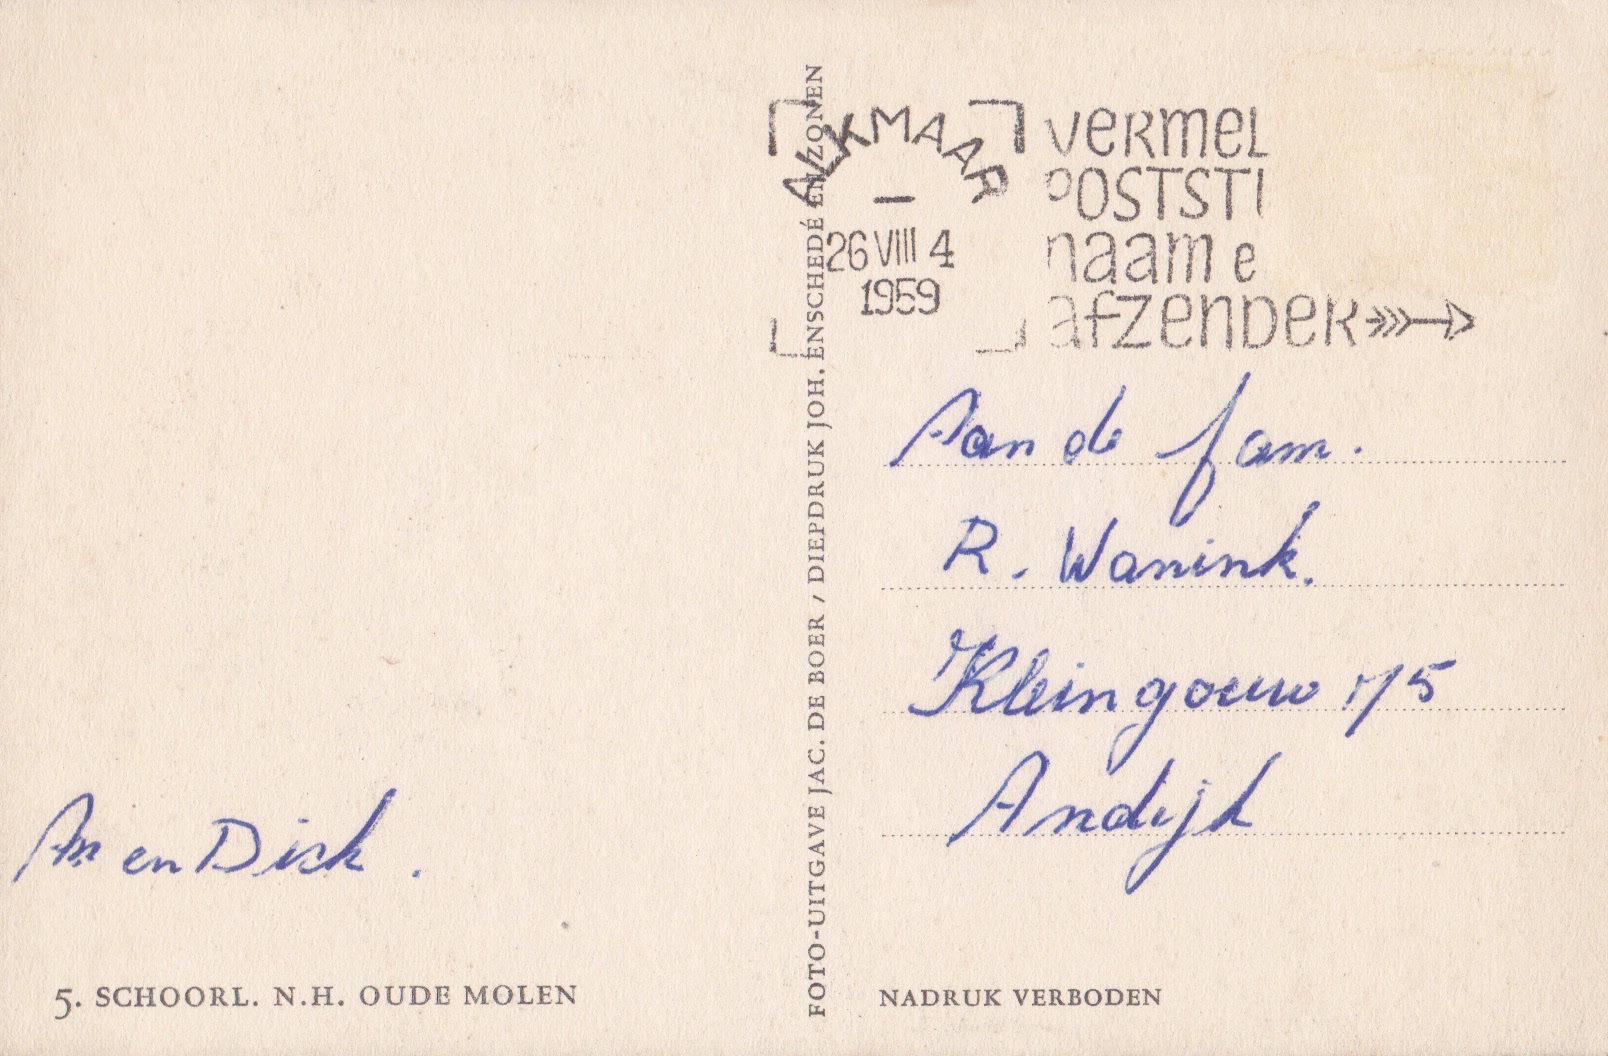 ALKMAAR
26 VIII 4
1959
VERMEL
POSTSTI
NAAM E
AFZENDER
Aan de fam.
R. Wanink.
Kleingouw 175
Andijk
An en Dick.
5. SCHOORL. N.H. OUDE MOLEN
FOTO-UITGAVE JAC. DE BOER / DIEPDRUK JOH. ENSCHEDÉ EN ZONEN
NADRUK VERBODEN